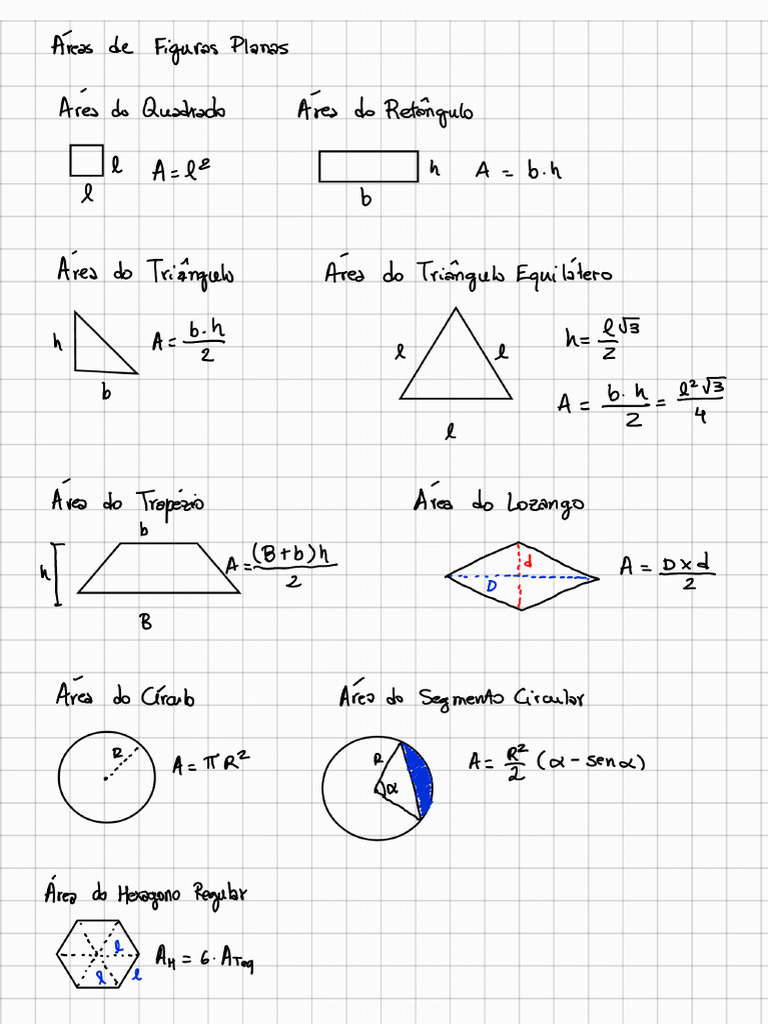 Áreas de Figuras Planas
Área do Quadrado
l
l
A = l²
Área do Retângulo
h
b
A = b.h
Área do Triângulo
h
b
A = b.h/2
Área do Triângulo Equilátero
l
l
l
h = l√3/2
A = b.h/2 = l²√3/4
Área do Trapézio
b
h
B
A = (B+b)h/2
Área do Lozango
d
D
A = D×d/2
Área do Círculo
R
A = πR²
Área do Segmento Circular
R
α
A = R²/2 (α - sen α)
Área do Hexagono Regular
l
l
l
A_H = 6·A_Teq